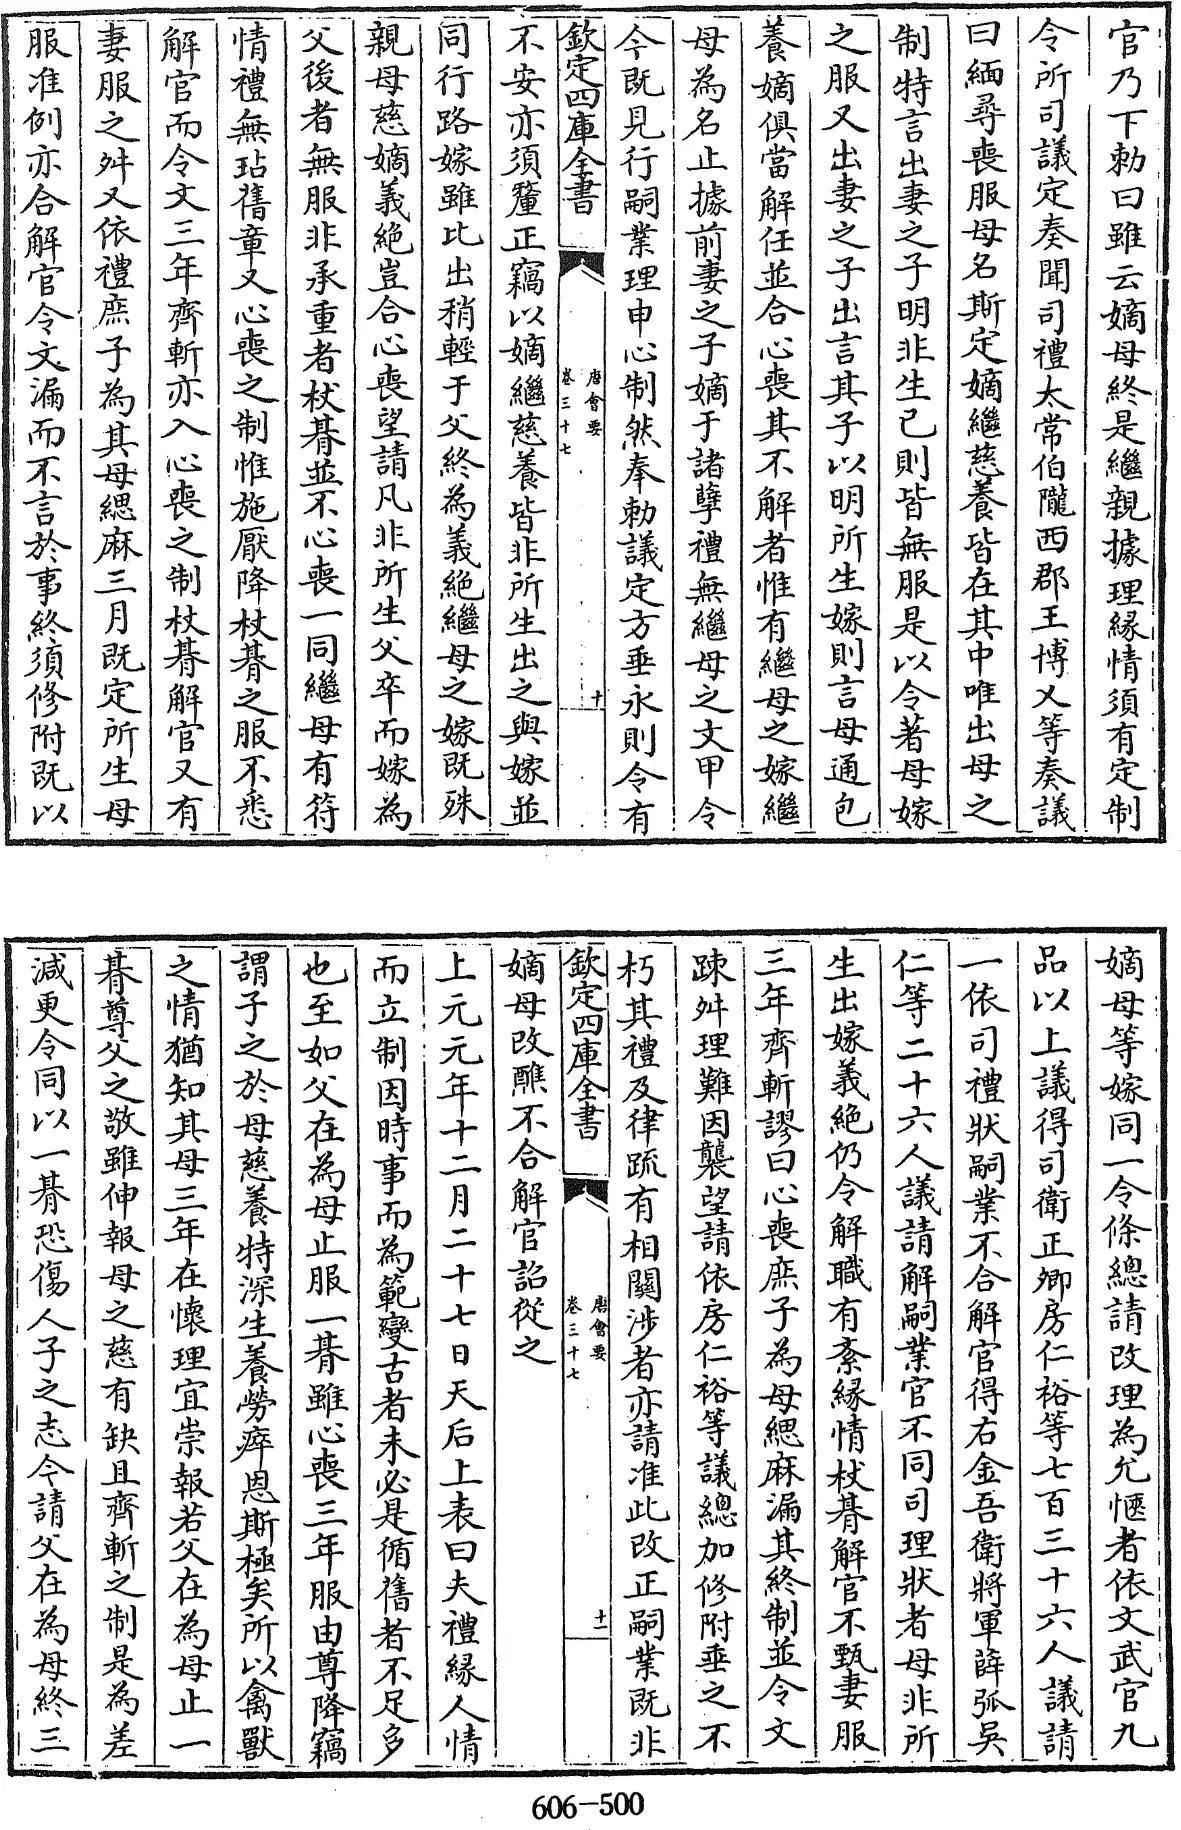 官乃下勅曰雖云嫡母終是繼親據理縁情須有定制
令所司議定奏聞司禮太常伯隴西郡王博乂等奏議
曰緬尋喪服母名斯定嫡繼慈養皆在其中唯出母之
制特言出妻之子明非生已則皆無服是以令著母嫁
之服又出妻之子出言其子以明所生嫁則言母通包
養嫡俱當解任並合心喪其不解者惟有繼母之嫁繼
母為名止據前妻之子嫡于諸孽禮無繼母之文甲令
今既見行嗣業理申心制然奉勅議定方垂永則令有
欽定四庫全書
唐會要
卷三十七
十
不安亦須釐正竊以嫡繼慈養皆非所生出之與嫁並
同行路嫁雖比出稍輕于父終為義絶繼母之嫁既殊
親母慈嫡義絶豈合心喪望請凡非所生父卒而嫁為
父後者無服非承重者杖朞並不心喪一同繼母有符
情禮無玷舊章又心喪之制惟施厭降杖朞之服不悉
解官而令文三年齊斬亦入心喪之制杖朞解官又有
妻服之舛又依禮庶子為其母緦麻三月既定所生母
服准例亦合解官令文漏而不言於事終須修附既以
嫡母等嫁同一令條總請改理為允愜者依文武官九
品以上議得司衛正卿房仁裕等七百三十六人議請
一依司禮狀嗣業不合解官得右金吾衛將軍薛弧吳
仁等二十六人議請解嗣業官不同司理狀者母非所
生出嫁義絶仍令解職有紊縁情杖朞解官不甄妻服
三年齊斬謬曰心喪庶子為母緦麻漏其終制並令文
踈舛理難因襲望請依房仁裕等議總加修附垂之不
朽其禮及律疏有相關涉者亦請准此改正嗣業既非
欽定四庫全書
唐會要
卷三十七
十一
嫡母改醮不合解官詔從之
上元元年十二月二十七日天后上表曰夫禮縁人情
而立制因時事而為範變古者未必是循舊者不足多
也至如父在為母止服一朞雖心喪三年服由尊降竊
謂子之於母慈養特深生養勞瘁恩斯極矣所以禽獸
之情猶知其母三年在懷理宜崇報若父在為母止一
朞尊父之敬雖伸報母之慈有缺且齊斬之制是為差
減更令同以一朞恐傷人子之志今請父在為母終三
606-500